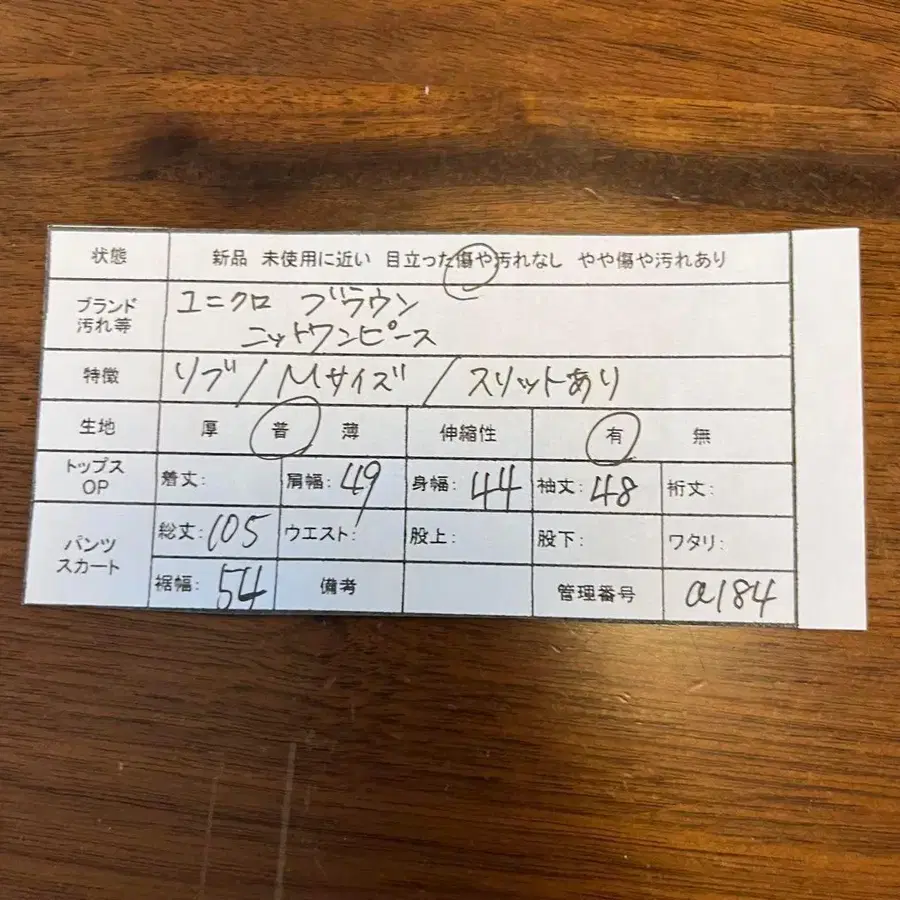 状態 新品 未使用に近い 目立った傷や汚れなし やや傷や汚れあり
ブランド 汚れ等 ユニクロ ブラウン
ニットワンピース
特徴 リブ/Mサイズ/スリットあり
生地 厚 普 薄 伸縮性 有 無
トップス OP 着丈: 肩幅: 49 身幅: 44 袖丈: 48 裄丈:
パンツ スカート 総丈: 105 ウエスト: 股上: 股下: ワタリ:
裾幅: 54 備考 管理番号 a184